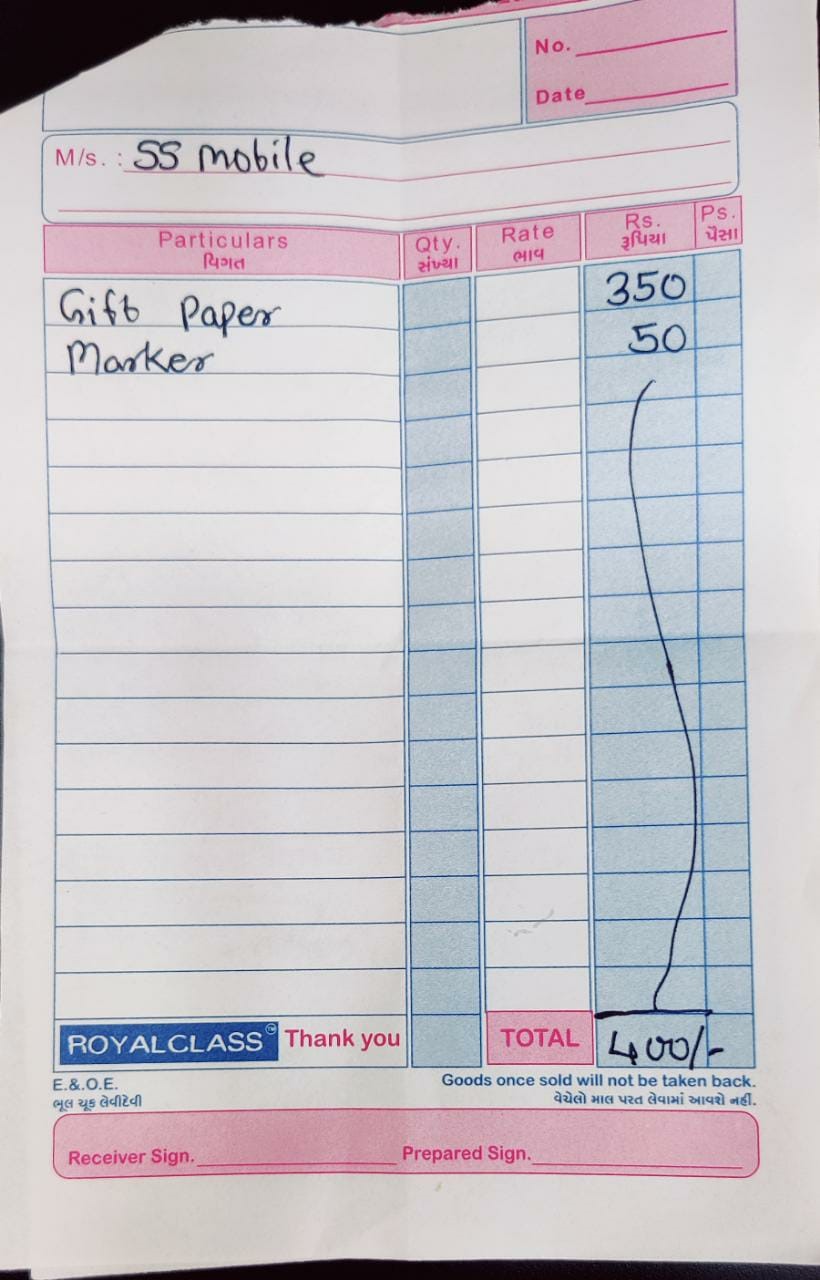 No.
Date
M/s. : SS mobile
Particulars Qty. Rate Rs. Ps.
વિગત સંખ્યા ભાવ રૂપિયા પૈસા
Gift Paper 350
Marker 50
ROYALCLASS™ Thank you TOTAL 400/-
E.&.O.E. Goods once sold will not be taken back.
ભૂલ ચૂક લેવીદેવી વેચેલો માલ પરત લેવામાં આવશે નહીં.
Receiver Sign. Prepared Sign.